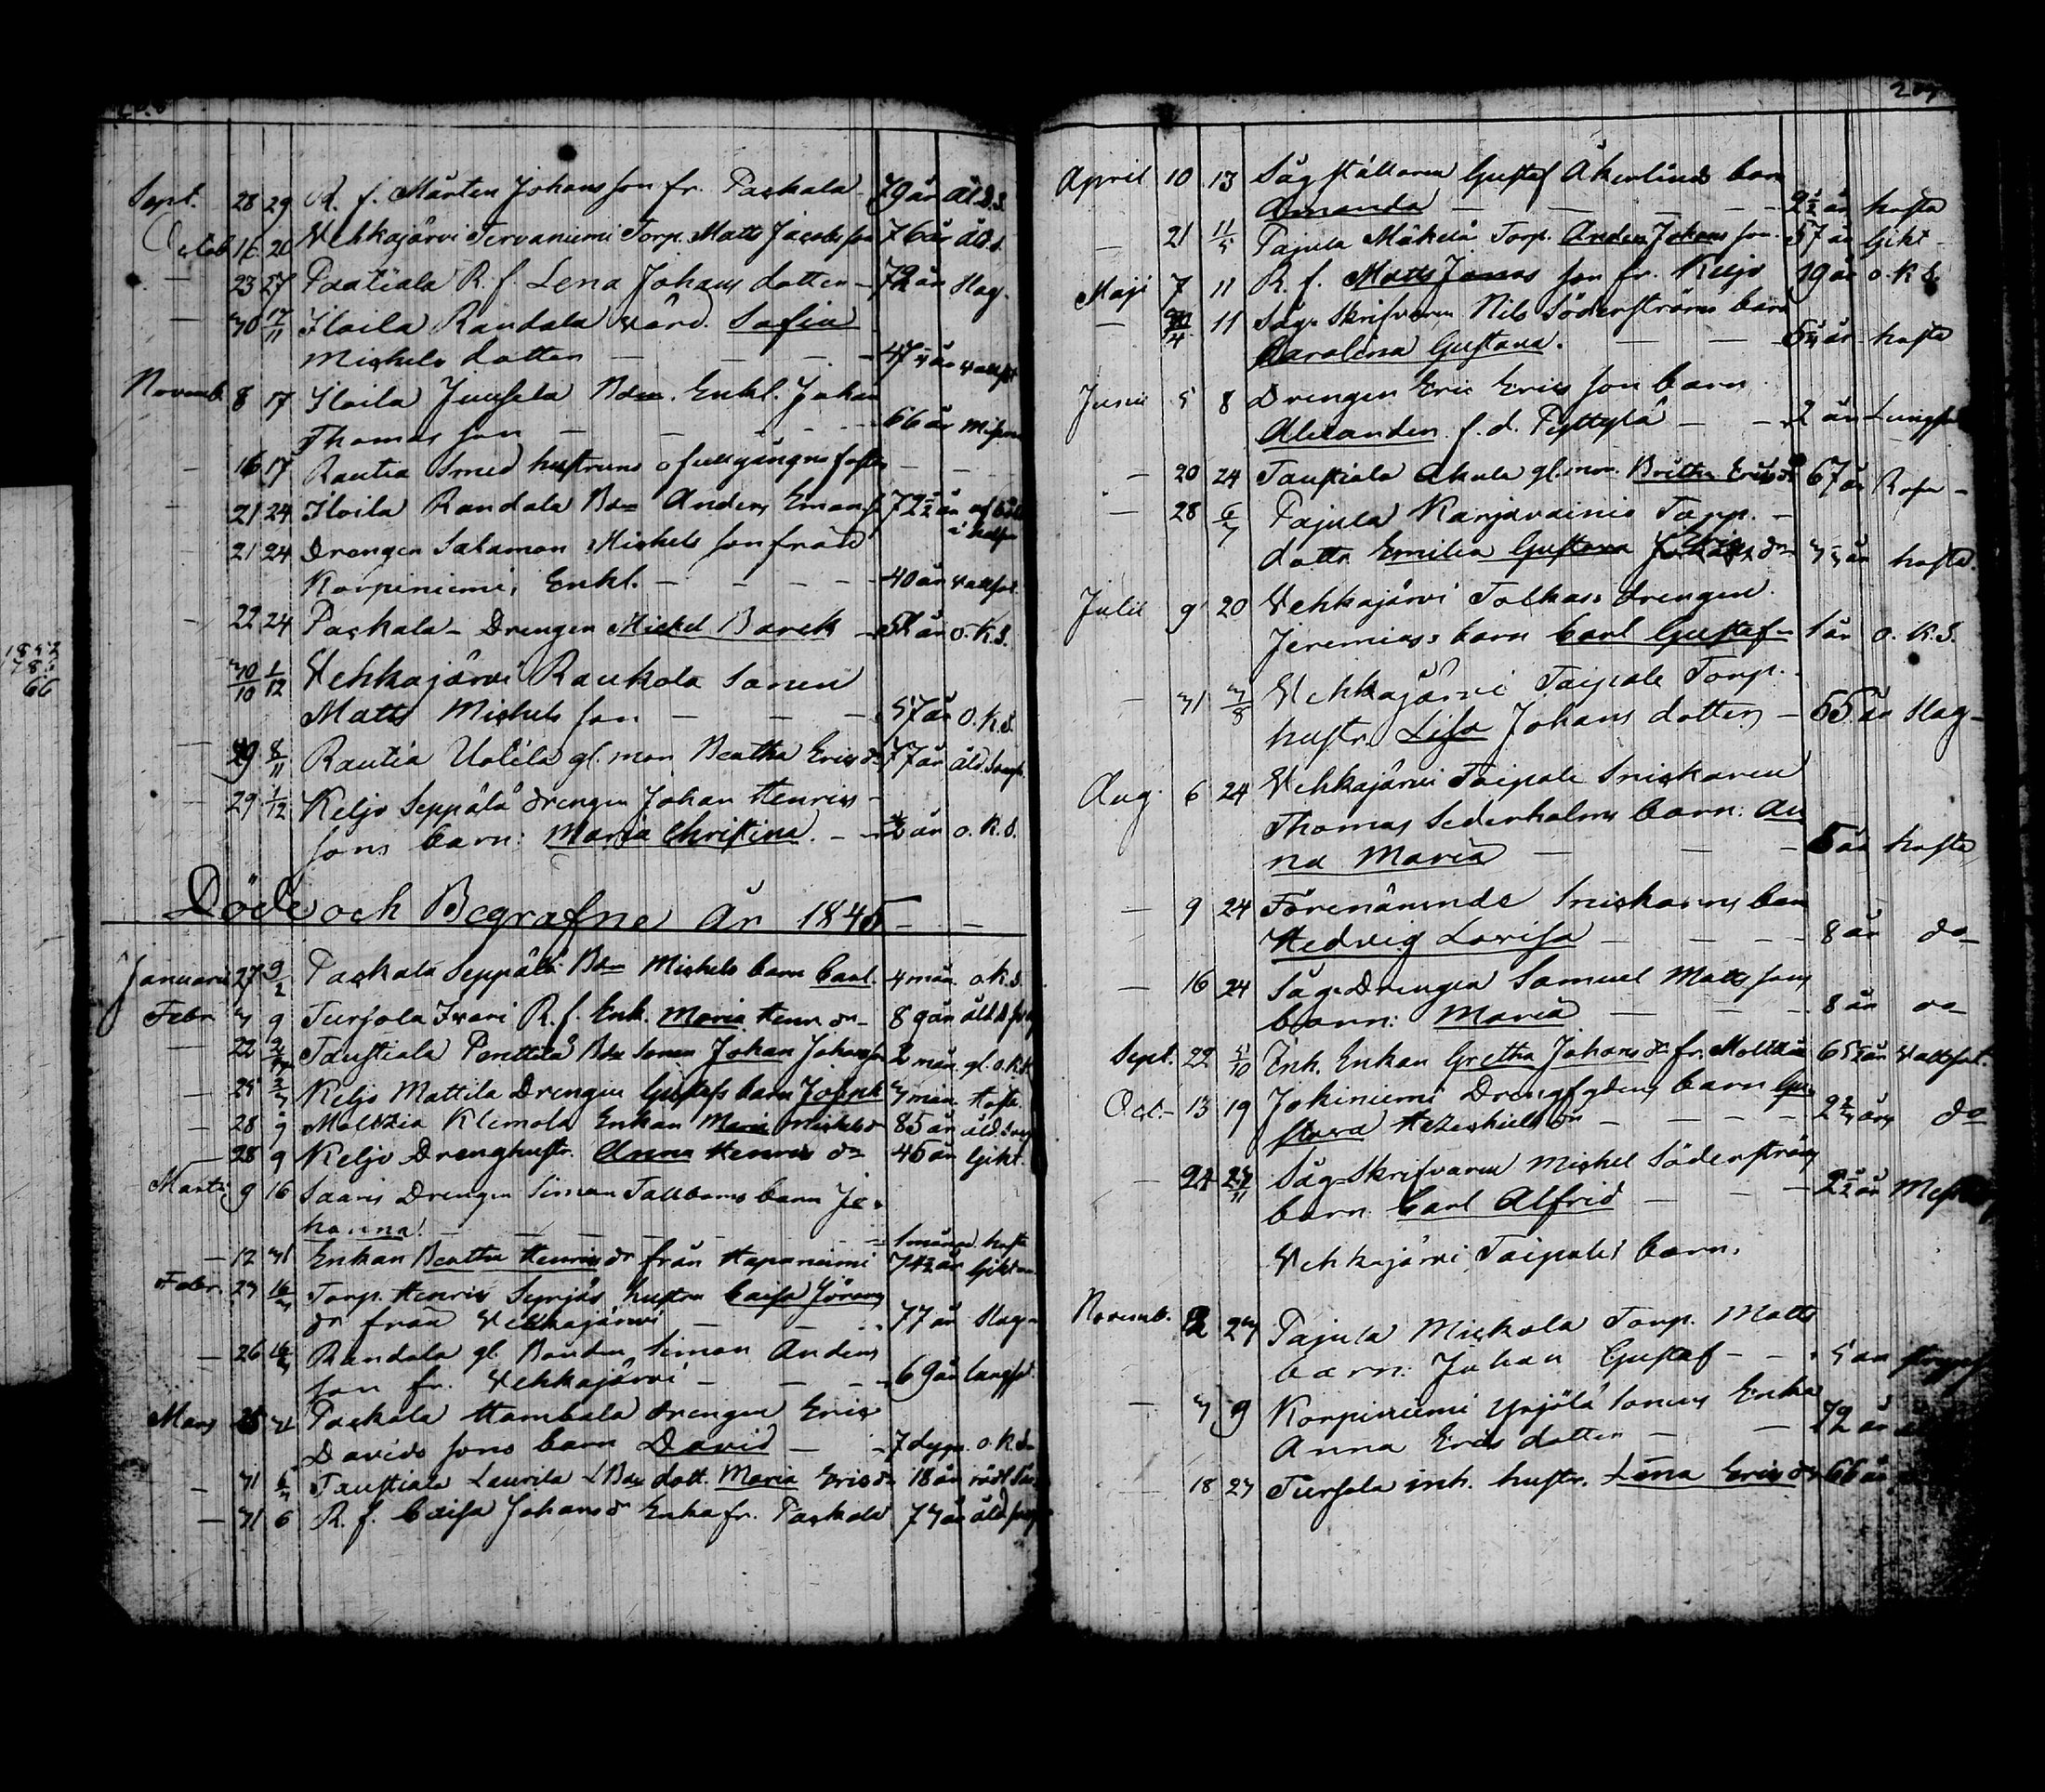 Sept. 28 29 R. f. Mårten Johans son fr. Paskala 79 år åld. s.
Octob 16 20 Vehkajärvi Tervaniemi Torp. Matts Jacobs son 76 år åld.
— 23 27 Paatiala R. f. Lena Johans dotter — 72 år slag.
— 30 17/11 Iloila Randala värd. Sofia
Michels dotter — — — 47 år vattsot
Novemb. 8 17 Iloila Juusela Bdn. Enkl. Johan
Thomas son — — — 66 år
— 16 17 Rautia Smed hustruns ofullgångna foster — —
21 24 Iloila Randala Bdn Anders 72 1/2 år
21 24 Drengen Salamon Michels son från
Korpiniemi, Enkl. — — — 40 år vattsot
— 22 24 Paskala — Drengen Michel Barck — år o. k. s.
30/10 1/12 Vehkajärvi Raukola sonen
Matts Michels son — — — 57 år o. k. s.
29 8/11 Rautia Uotila gl. mor Beatha Erics dr 77 år åld. svagh.
29 1/12 Keljo Seppälä drengen Johan Henrics
sons barn: Maria Christina. — 2 år o. k. s.
Döde och Begrafne år 1845 — —
Januari 27 9/2 Paskala Seppälä Bdn Michels barn Carl. 4 mån. o. k. s.
Febr 3 9 Tursola Ivari R. f. Enk. Maria Henr. dr — 89 år åld. svagh
— 22 Taustiala Penttilä Bdn sonen Johan Johansson 2 mån. gl. o. k. s.
— 25 2/3 Keljo Mattila Drengen Gustafs barn Joseph 3 mån. hosta.
— 28 9 Moltzia Klemola Enkan Maria Michels dr 85 år åld. svag
— 28 9 Keljo Drenghustr. Anna Henrics dr 45 år Gikt.
Martii 9 16 Saaris Drengen Simon Tallboms barn Jo-
hanna. — — — 1 månad hosta
— 12 31 Enkan Beatha Henrics dr från Haponiemi 74 1/2 år Gikt
Febr. 23 16/3 Torp. Henric Syrjäs hustru Caisa Jörans
dr från Vehkajärvi — — 77 år slag
— 26 16/3 Randala gl. Bonden Simon Anders
son fr. Vehkajärvi — — — 69 år lungsot.
Mars 26 31 Paskala Hambala drengen Eric
Davids sons barn David — — 7 dygn. o. k. s.
— 31 Taustiala Laurila LBdn dott. Maria Erics dr 18 år röds.
— 31 6 R. f. Caisa Johans dr Enka fr. Paskala 73 år åld. svag
207
April 10 13 Sågställaren Gustaf Åkerlinds barn
Amanda — — — 2 1/2 år hosta
— 21 11/5 Pajula Mäkelä Torp. Anders Johans son. 57 år Gikt —
Maji 7 11 R. f. Matts Jonas son fr. Keljo 19 år o. k. s.
— 30/4 11 Såg-Skrifvaren Nils Söderströms barn
Carolina Gustava. — — år hosta
Junii 5 8 Drengen Eric Erics son barn
Alexander f. d. Pyttylä — — 2 år Lungsot
— 20 24 Taustiala Akula gl. mor. Britha Erics dr 67 år Rosen —
— 28 6/7 Pajula Karjavainio Torp. —
dottr. Emilia Gustava dr 3 år hosta.
Julii 9 20 Vehkajärvi Tolkas drengen
Jeremias's barn Carl Gustaf — 1 år o. k. s.
— 31 3/8 Vehkajärvi Taipale Torp.
hustr. Lisa Johans dotter — 55 år slag —
Aug. 6 24 Vehkajärvi Taipale Snickaren
Thomas Sederholms barn: An
na Maria — — — 5 år hosta
— 9 24 Förenämnde Snickarens barn
Hedvig Lovisa — — — 8 år do —
— 16 24 Såg-Drengen Samuel Matts sons
barn: Maria — — — 8 år do —
Sept. 22 5/10 Enk. Enkan Gretha Johans dr fr. Moltzia 65 1/2 år Vattsot.
Oct. — 13 19 Jokiniemi Drengfgdens barn Gu
stava Hezekiels dr — — — 2 år do
— 24 Såg-Skrifvaren Michel Söderströms
barn Carl Alfrid — — — 2 1/2 år
Vehkajärvi Taipales barn.
Novemb. 2 23 Pajula Mickola Torp. Matts
barn: Johan Gustaf — — 5 år
— 3 9 Korpiniemi Yrjölä sonens Enka
Anna Erics dotter — — 72 år
— 18 23 Tursola inh. hustr. Lena Erics dr 66 år